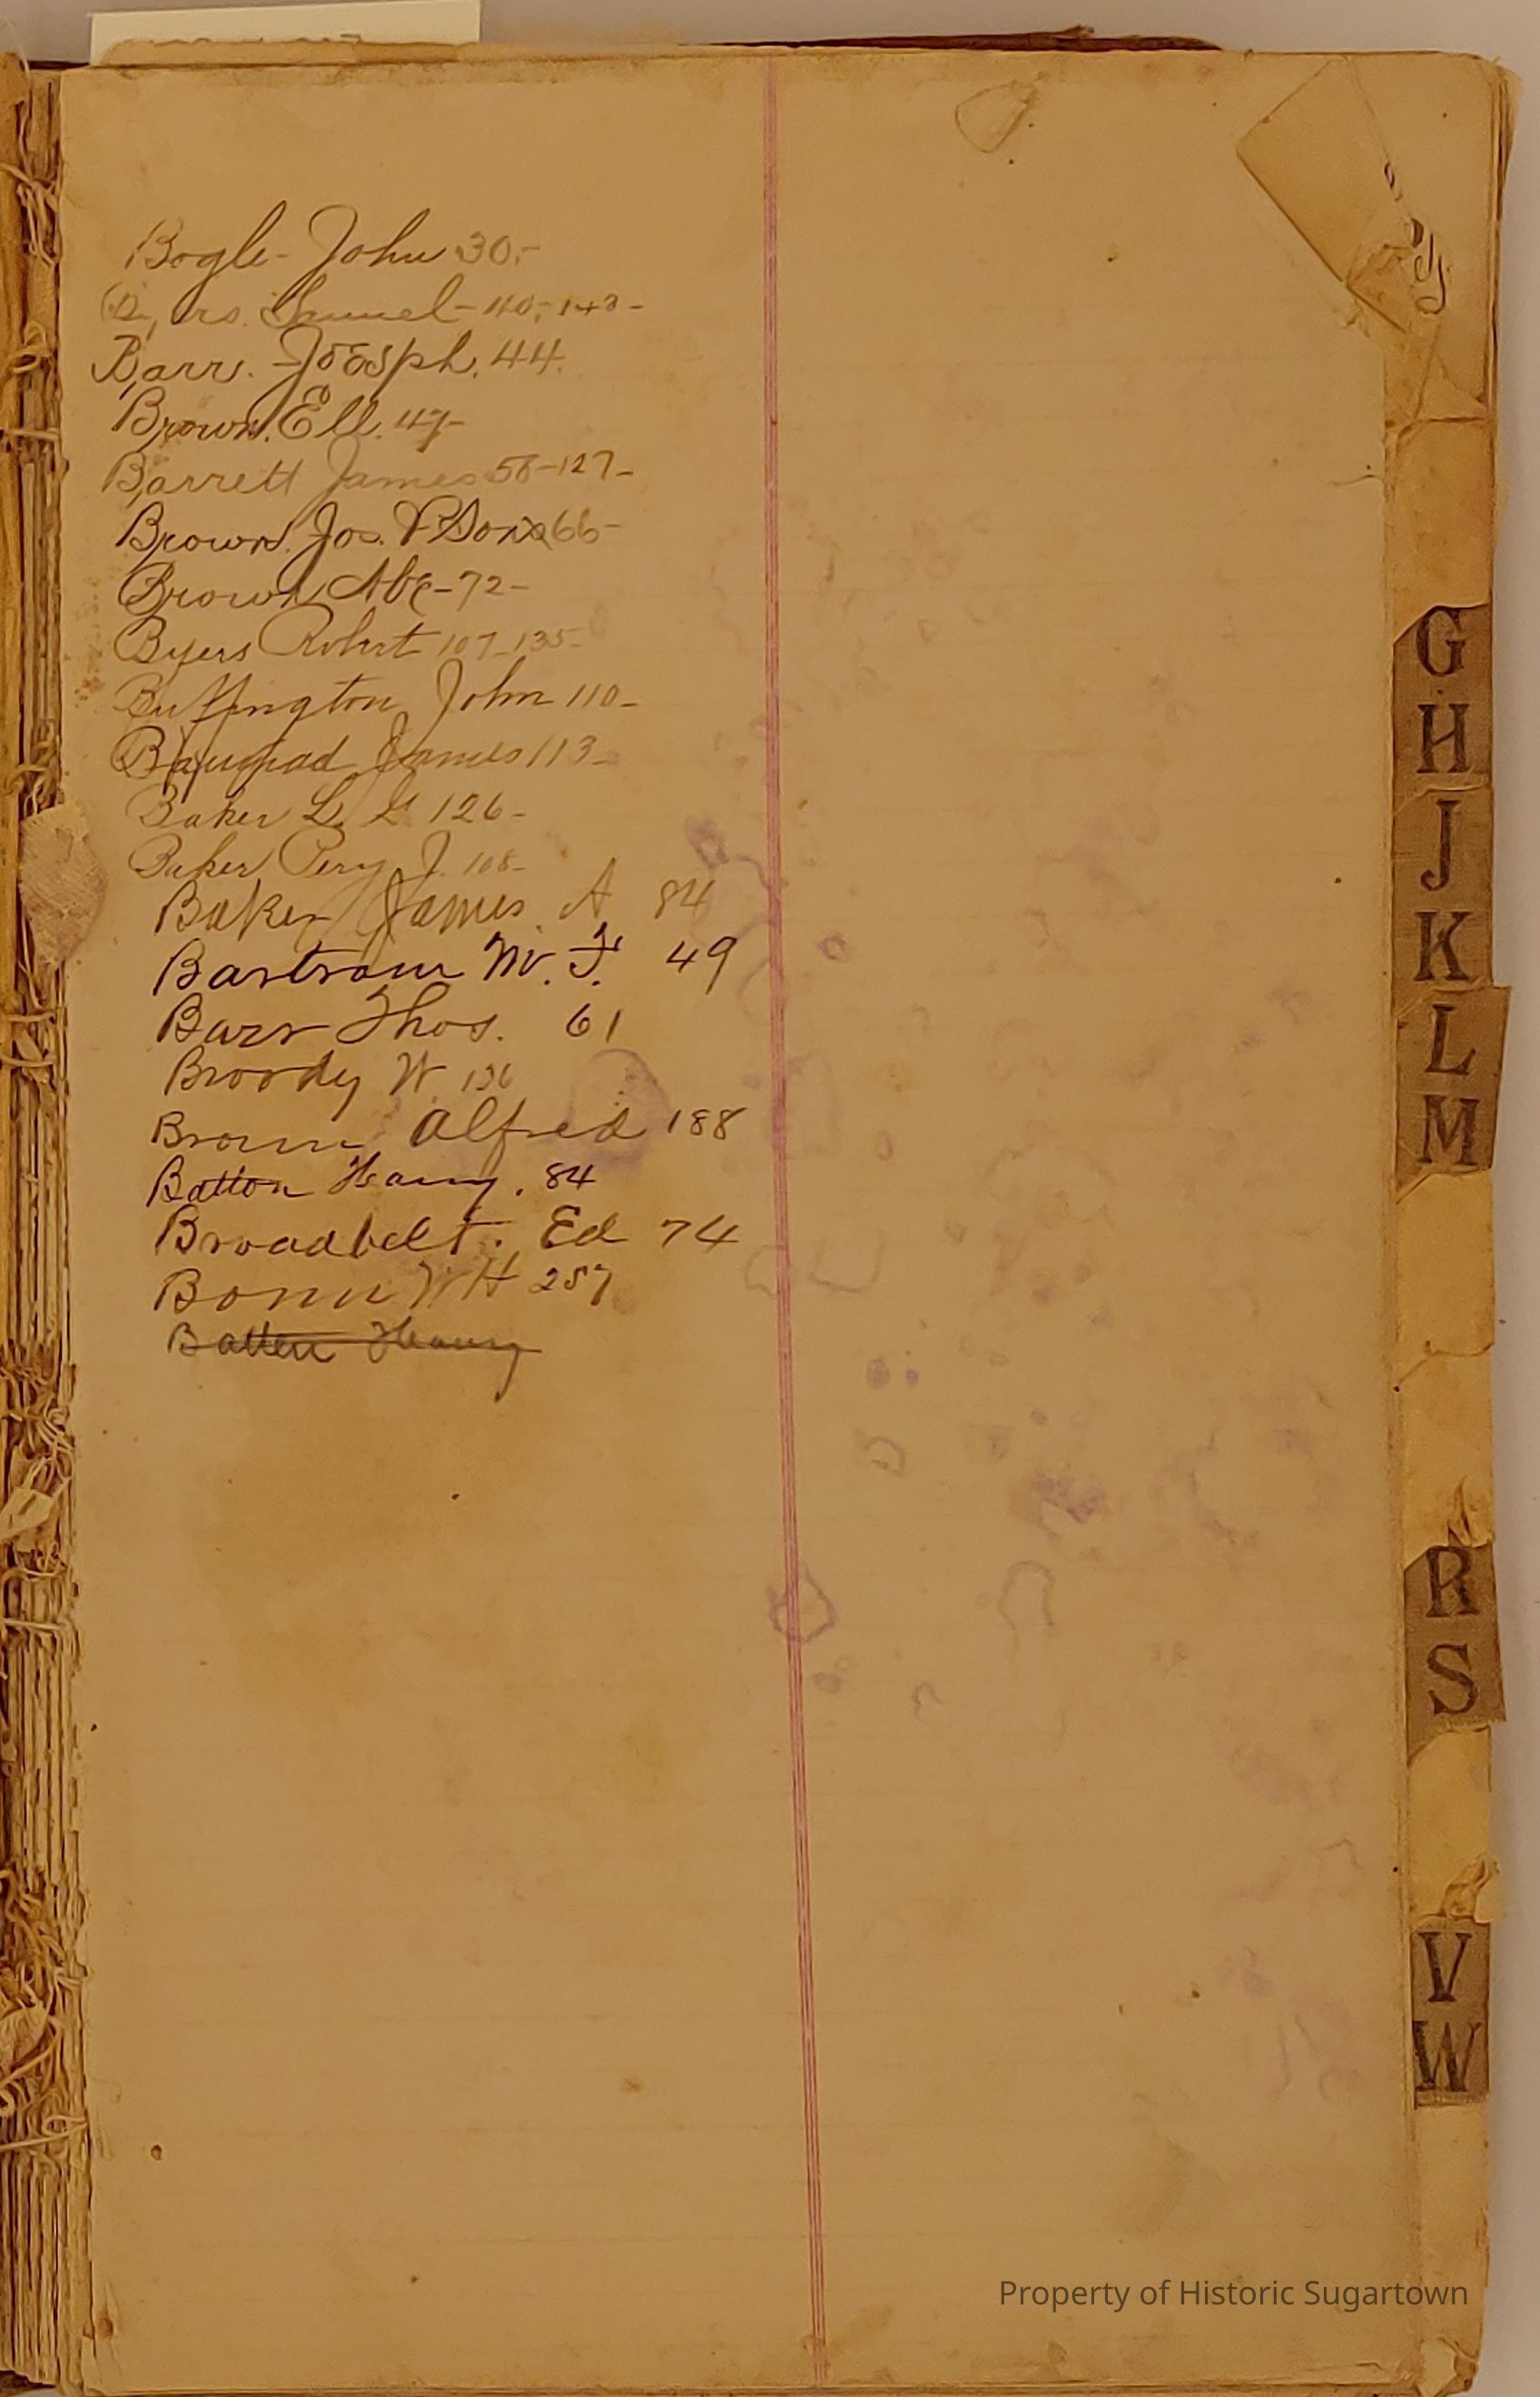 Bogle- John 30.-
Samuel- 110;-143-
Barr. Joesph. 44.
Brown. Ell. 47-
Barrett James 58-127-
Brown. Jos. & Sons 66-
Brown Abe-72-
Byers Robert 107-135-
Buffington John 110-
James 113-
Baker L. 126-
Baker Pery J. 108-
Baker James A 84
Bartram W. F. 49
Barr Thos. 61
Broody W 136
Brown Alfred 188
Batton Harry. 84
Broadbelt. Ed 74
Bonn W H 257
Batten Harry
G
H
J
K
L
M
R
S
V
W
Property of Historic Sugartown